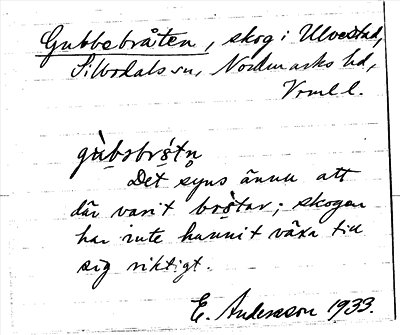 Gubbebråten, skog i Ulvestad,
Silbodals sn, Nordmarks hd,
Vrml l.
gùbəbrǿtn̥
Det syns ännu att
där varit brøtar; skogen
har inte hunnit växa till
sig riktigt.
E. Andersson 1933.